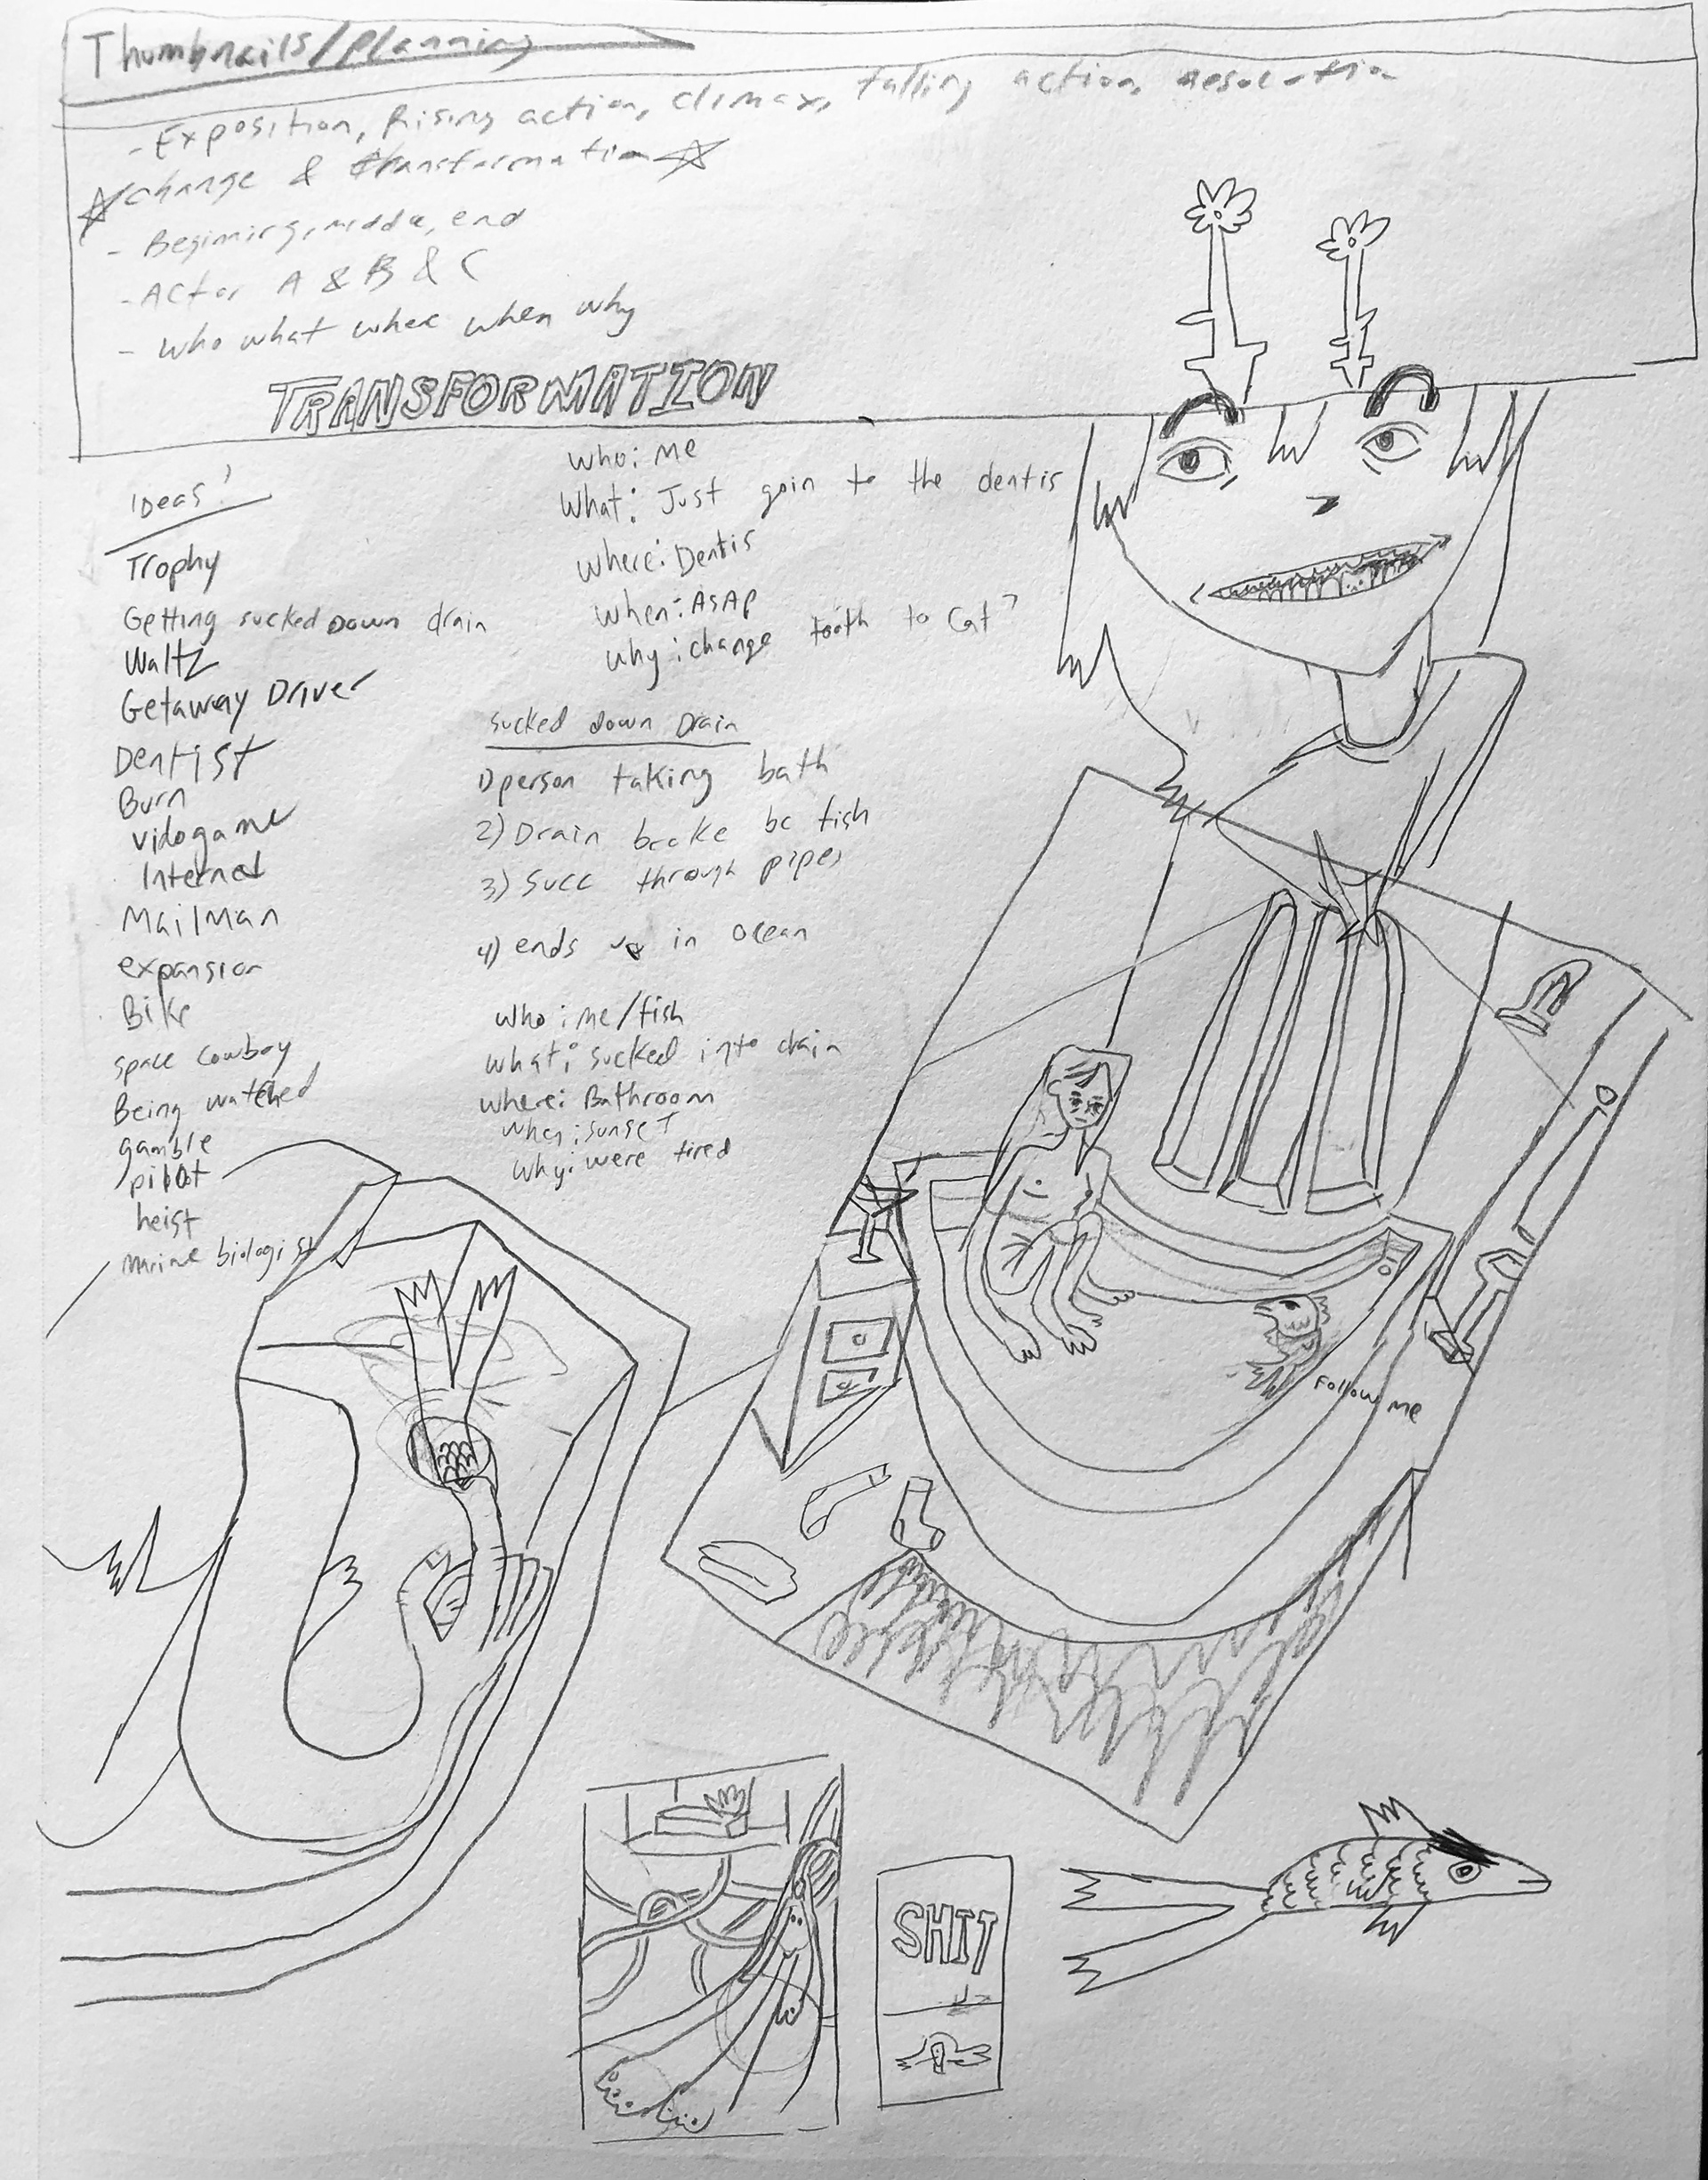 Thumbnails/planning
- Exposition, Rising action, climax, falling action, resolution
☆ change & transformation ☆
- Beginning, middle, end
- Actor A & B & C
- who what where when why
TRANSFORMATION
Ideas!
Trophy
Getting sucked down drain
Waltz
Getaway Driver
Dentist
Burn
vidogame
Internet
Mailman
expansion
Bike
space cowboy
Being watched
gamble
pilot
heist
marine biologist
who: me
What: Just goin to the dentis
where: Dentis
when: ASAP
why: change tooth to Cat?
sucked down Drain
1) person taking bath
2) Drain broke bc fish
3) Succ through pipes
4) ends up in Ocean
who: me/fish
what: sucked into drain
where: Bathroom
when: sunset
why: were tired
Follow me
SHIT